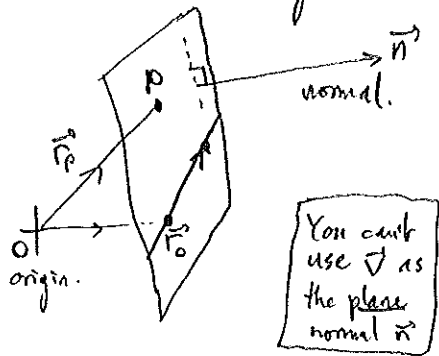 n⃗
normal.
P
r⃗ₚ
O
origin.
r⃗₀
You can't
use v⃗ as
the plane
normal n⃗